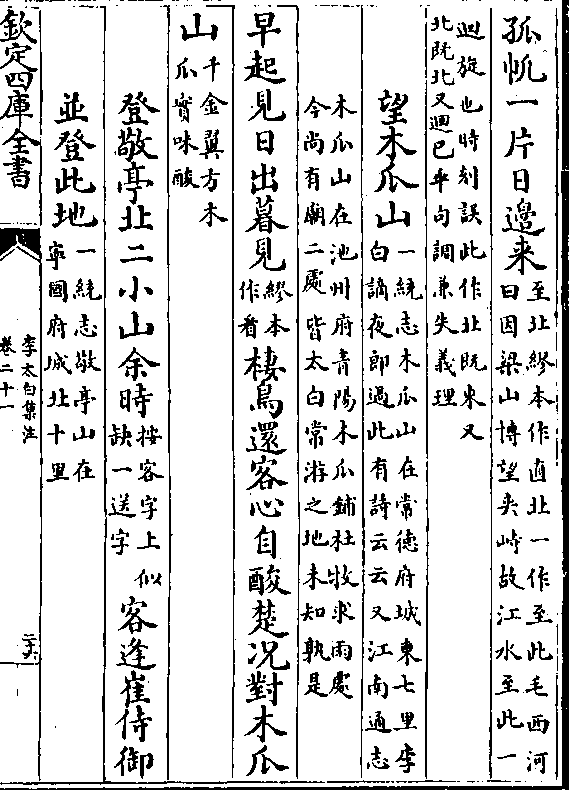 孤帆一片日邊来至北繆本作直北一作至此毛西河曰因梁山博望夾峙故江水至此一
迴旋也時刻誤此作北既東又北既北又迴已乖句調兼失義理
望木瓜山一統志木瓜山在常德府城東七里李白謫夜郎過此有詩云云又江南通志
木瓜山在池州府青陽木瓜鋪杜牧求雨處今尚有廟二處皆太白常游之地未知孰是
早起見日出暮見繆本作看棲鳥還客心自酸楚况對木瓜
山千金翼方木瓜實味酸
登敬亭北二小山余時按客字上似缺一送字客逢崔侍御
並登此地一統志敬亭山在寧國府城北十里
欽定四庫全書
李太白集注
卷二十一
二六